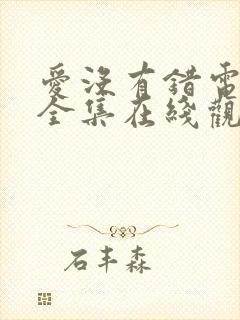 愛沒有錯電
全集在綫觀
石丰森